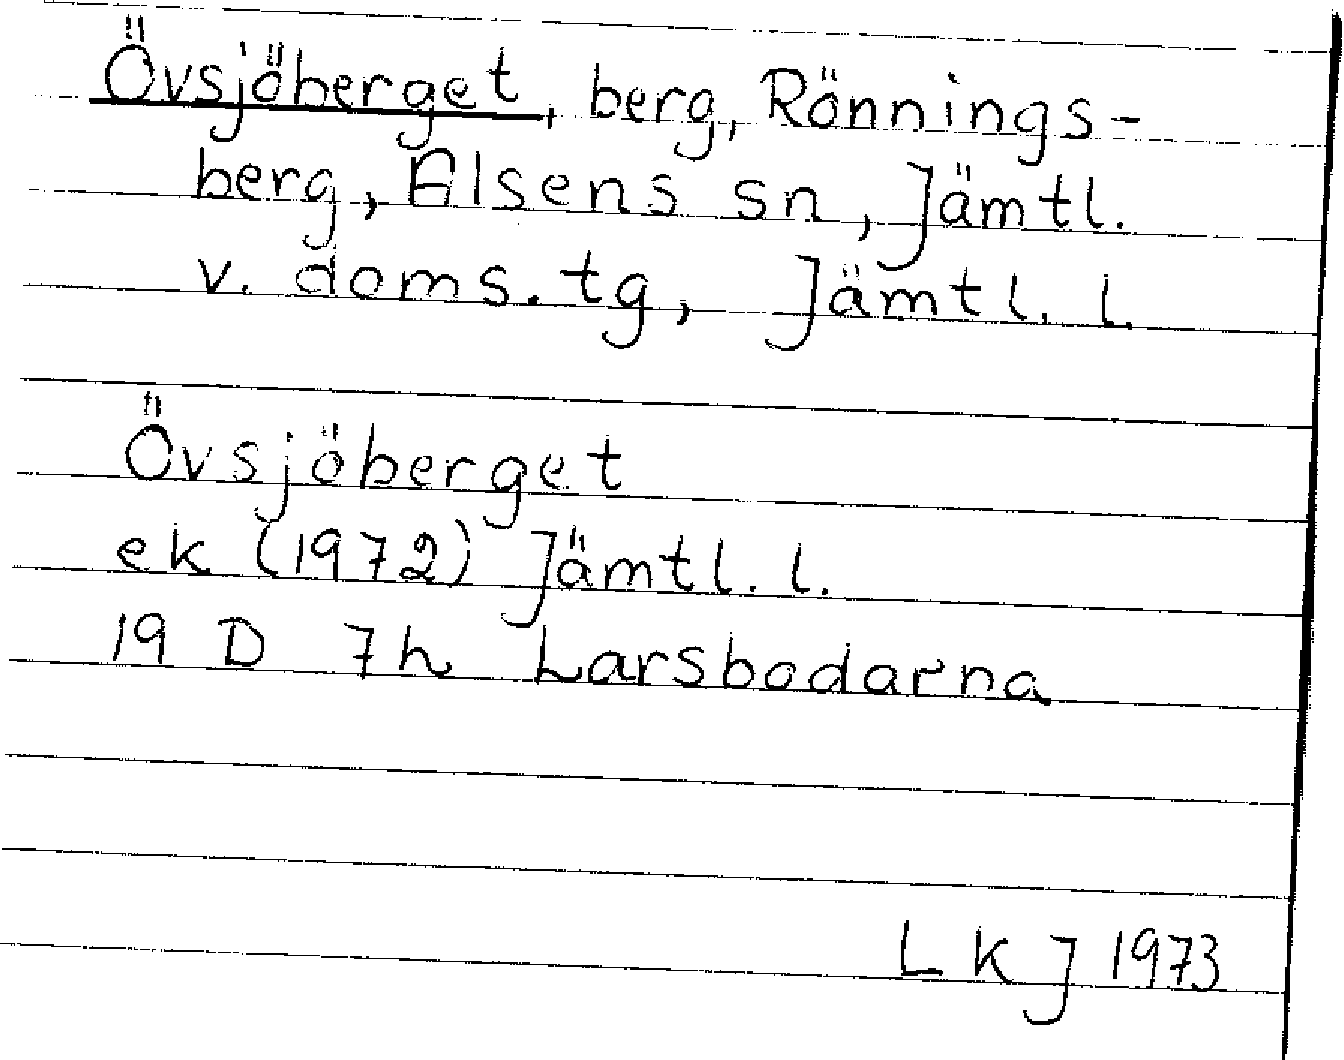 Övsjöberget, berg, Rönnings-
berg, Alsens sn, Jämtl.
v. doms. tg, Jämtl. l.
Övsjöberget
ek (1972) Jämtl. l.
19 D 7h Larsbodarna
LKJ 1973